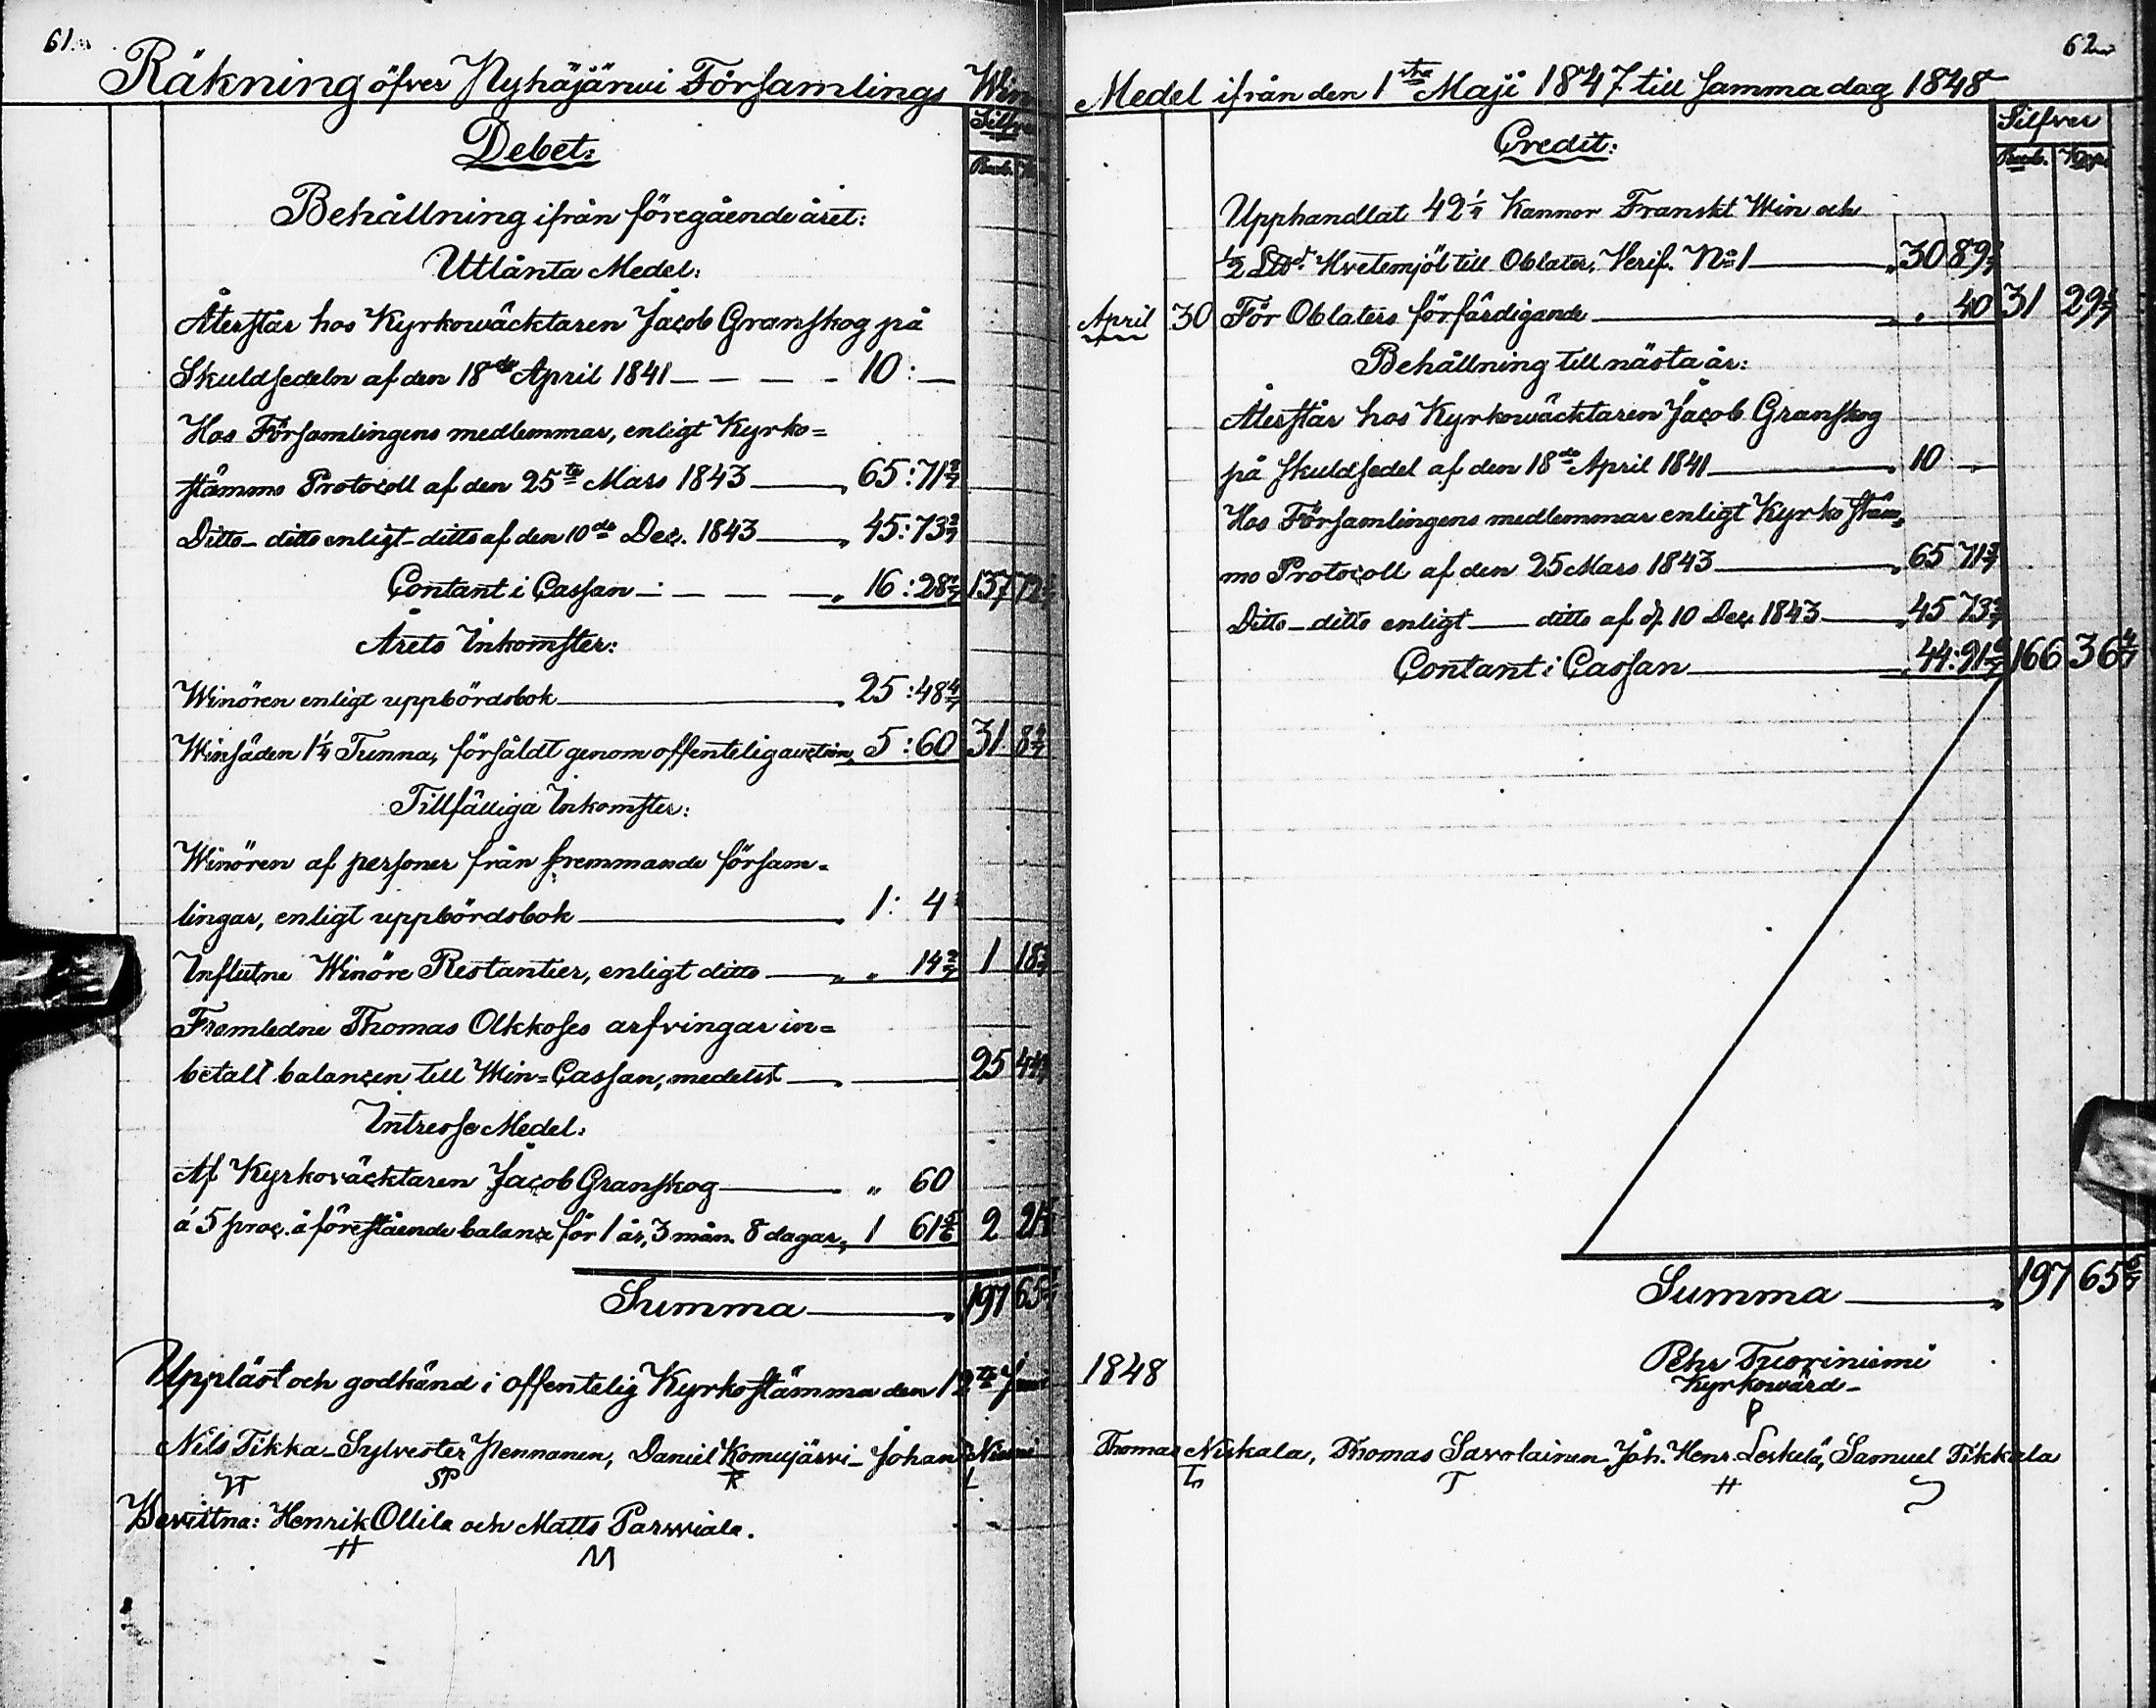 61.
Räkning öfver Pyhäjärwi Församlings Win
Silfver
Debet:
Rub. Kop.
Behållning ifrån föregående året:
Utlånta Medel:
Återstår hos Kyrkowäcktaren Jacob Granskog på
Skuldsedeln af den 18de April 1841 — — — - 10: —
Hos Församlingens medlemmar, enligt Kyrko=
stämmo Protocoll af den 25te Mars 1843 — 65:71 3/7
Ditto - ditto enligt - ditto af den 10de Dec. 1843 — 45:73 3/7
Contant i Cassan — : — — — 16:28 4/7 137 72
Årets Inkomster:
Winören enligt uppbördsbok — 25:48 4/7
Winsäden 1 1/4 Tunna, försåldt genom offentelig auction, 5:60 31 8 4/7
Tillfälliga Inkomster:
Winören af personer från fremmande försam-
lingar, enligt uppbördsbok — 1: 4
Influtne Winöre Restantier, enligt ditto — „ 14 2/7 1 18
Framledne Thomas Olkkoses arfvingar in=
betalt balancen till Win=Cassan, medelst — 25 44
Intresse Medel:
Af Kyrkoväcktaren Jacob Granskog — „ 60
á 5 proc. å förestående balance för 1 år, 3 mån. 8 dagar, 1 61 5/6 2 21
Summa — 197 65
Uppläst och godkänd i offentelig Kyrkostämma den 12te Juni
Nils Tikka - Sylvester Pennanen, Daniel Komujärvi - Johan Niemi
SP K
Bevittna: Henrik Ollila och Matts Parwiala.
H M
62
Medel ifrån den 1sta Maji 1847 till samma dag 1848
Silfver
Credit:
Rub. Kop.
Upphandlat 42 1/4 Kannor Franskt Win och
1/2 L℔d Hvetemjöl till Oblater, Verif. No 1 — 30 89
April 30 För Oblaters förfärdigande — „ 40 31 29
Behållning till nästa år:
Återstår hos Kyrkowäcktaren Jacob Granskog
på skuldsedel af den 18de April 1841 — 10 —
Hos Församlingens medlemmar enligt Kyrkostäm-
mo Protocoll af den 25 Mars 1843 — 65 71 3/7
Ditto - ditto enligt — ditto af d. 10 Dec. 1843 — 45 73 3/7
Contant i Cassan — 44:91 166 36 4/7
Summa — 197 65 6/7
1848
Pehr Tuoriniemi
Kyrkowärd -
P
Thomas Niskala, Thomas Savolainen, Joh. Henr. Leskelä, Samuel Tikkala
T H